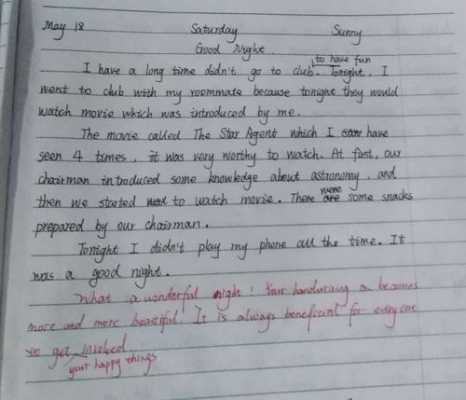 May 18 Saturday Sunny
Good Night
to have fun
I have a long time didn't go to club. Tonight, I
went to club with my roommate because tonight they would
watch movie which was introduced by me.
The movie called The Star Agent which I have
seen 4 times, it was very worthy to watch. At first, our
chairman introduced some knowledge about astronomy, and
were
then we started to watch movie. There are some snacks
prepared by our chairman.
Tonight I didn't play my phone all the time. It
was a good night.
What a wonderful night! Your handwriting becomes
more and more beautiful. It is always beneficent for everyone
get involved
your happy things